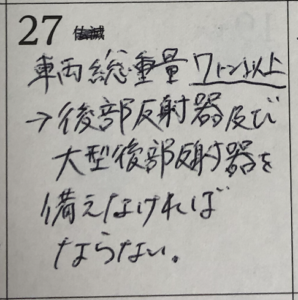 27 仏滅
車両総重量7トン以上
→後部反射器及び
大型後部反射器を
備えなければ
ならない。